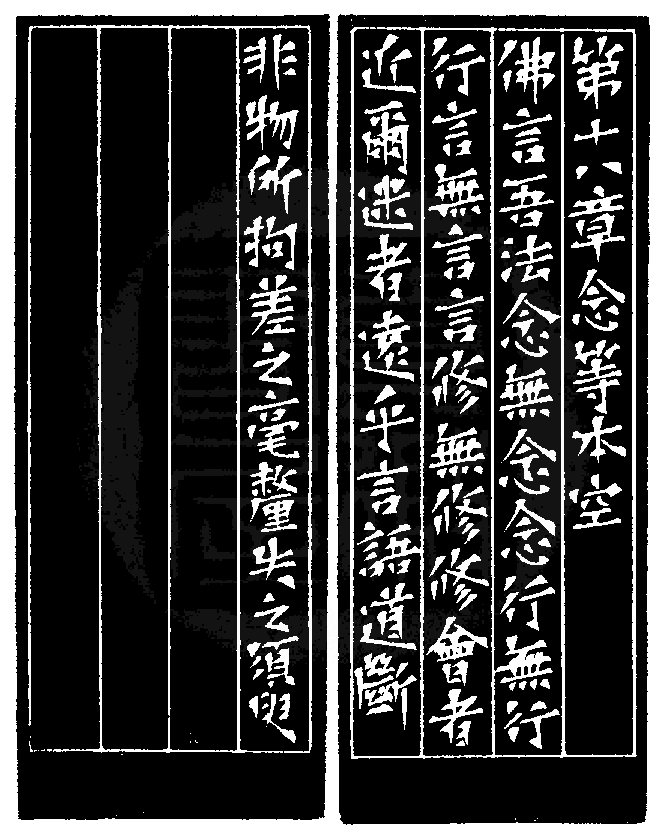 第十八章念等本空
佛言吾法念無念念行無行
行言無言言修無修修會者
近爾迷者遠乎言語道斷
非物所拘差之毫釐失之須臾